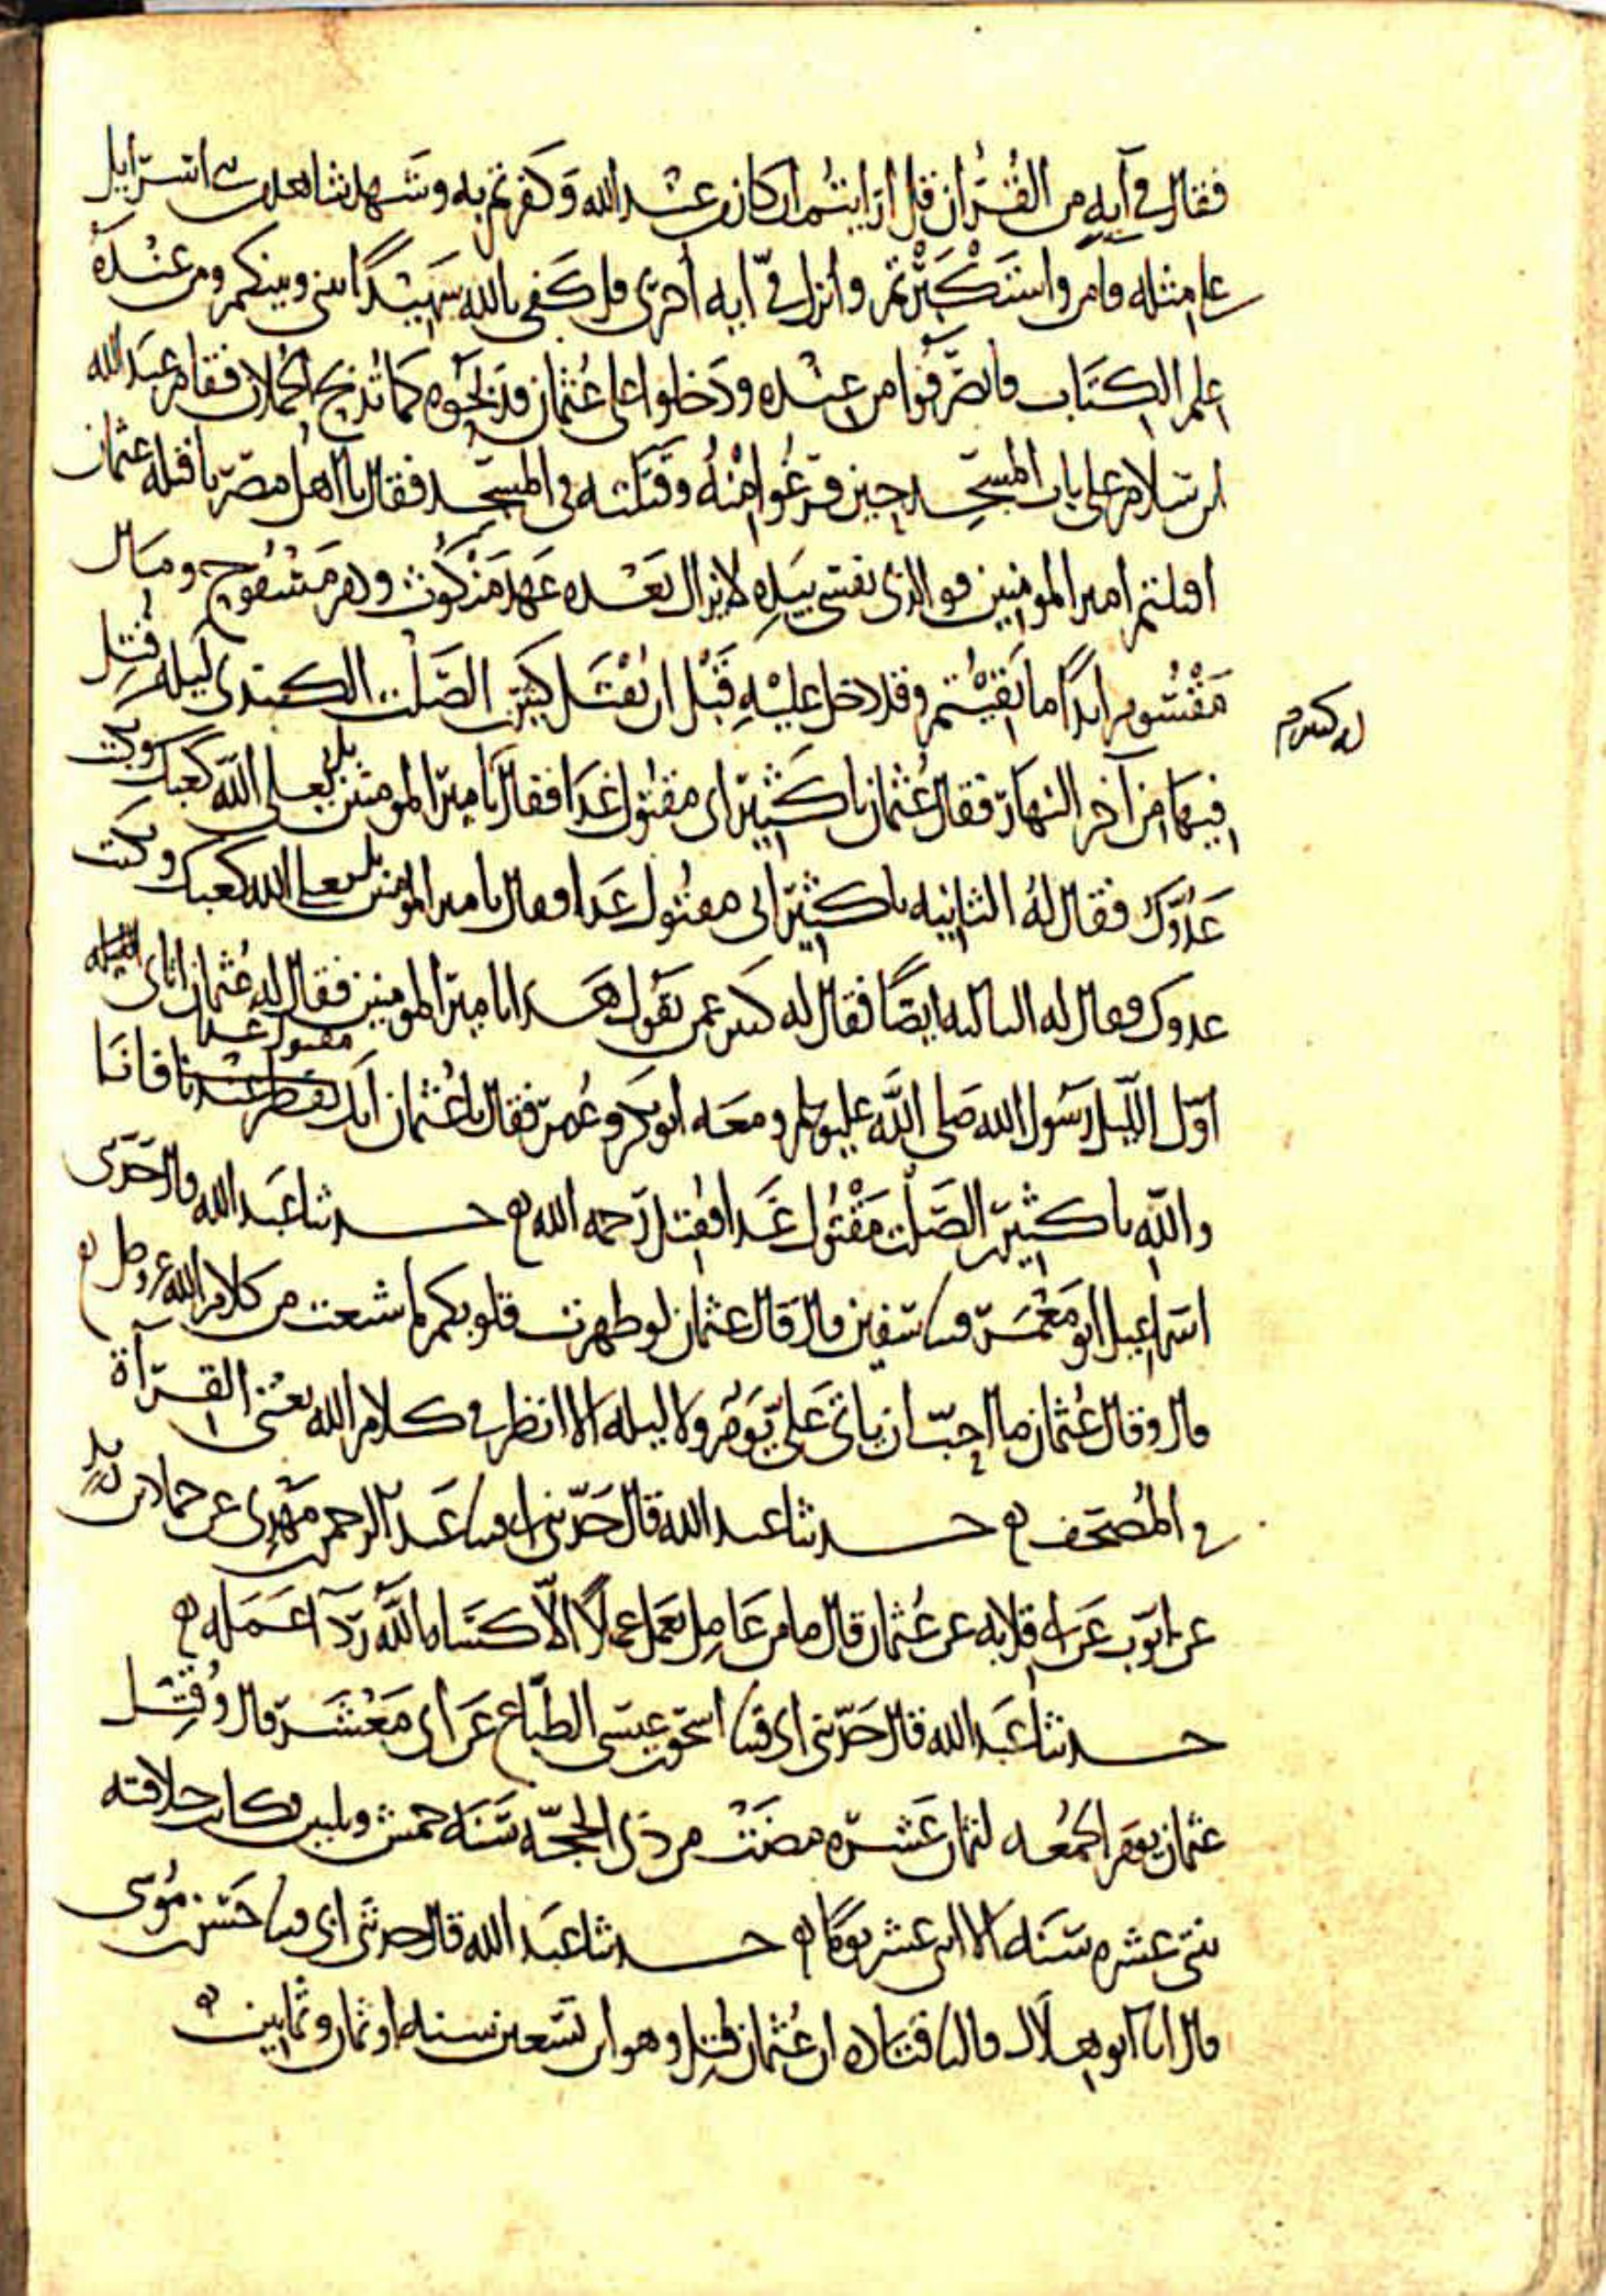 فقال في آية من القرآن قل أرأيتم إن كان من عند الله وكفرتم به وشهد شاهد من بني إسرائيل
على مثله فآمن واستكبرتم وأنزل في آية أخرى قل كفى بالله شهيدًا بيني وبينكم ومن عنده
علم الكتاب فانصرفوا من عنده ودخلوا على عثمان فذبحوه كما تذبح الحملان فقام عبد الله
بن سلام على باب المسجد حين فرغوا منه وقتلته في المسجد فقال يا أهل مصر يا قتلة عثمان
أقتلتم أمير المؤمنين فوالذي نفسي بيده لا يزال بعده عهد منكوث ودم مسفوح ومال
مقسوم أبدًا ما بقيتم وقد دخل عليه قبل أن يقتل كثير بن الصلت الكندي ليلة قتل
فيها من آخر النهار فقال عثمان يا كثير إني مقتول غدا فقال يا أمير المؤمنين بل يعلي الله كعبك ويكبت
عدوك فقال له الثانية يا كثير إني مقتول غدا فقال يا أمير المؤمنين بل يعلي الله كعبك ويكبت
عدوك فقال له الثالثة أيضًا فقال له كثير عمن تقول هذا يا أمير المؤمنين فقال له عثمان أتاني الليلة
أول الليل رسول الله صلى الله عليه وسلم ومعه أبو بكر وعمر فقال يا عثمان إنك مقتول غدا فأنا
والله يا كثير بن الصلت مقتول غدا فقتل رحمه الله حدثنا عبد الله قال حدثني
إسماعيل أبو معمر قثنا سفين قال قال عثمان لو طهرت قلوبكم ما شبعت من كلام الله عز وجل
قال وقال عثمان ما أحب أن يأتي علي يوم ولا ليلة إلا أنظر في كلام الله يعني القرآة
في المصحف حدثنا عبد الله قال حدثني أبي قثنا عبد الرحمن بن مهدي عن حماد بن زيد
عن أيوب عن أبي قلابة عن عثمان قال ما من عامل يعمل عملًا إلا كساه الله رداء عمله
حدثنا عبد الله قال حدثني أبي قثنا إسحق بن عيسى الطباع عن أبي معشر قال وقتل
عثمان يوم الجمعة لثمان عشرة مضت من ذي الحجة سنة خمس وثلثين وكانت خلافته
ثنتي عشرة سنة إلا اثني عشر يومًا حدثنا عبد الله قال حدثني أبي قثنا حسن بن موسى
قال أنا أبو هلال قال نا قتادة أن عثمان قتل وهو ابن تسعين سنة أو ثمان وثمانين